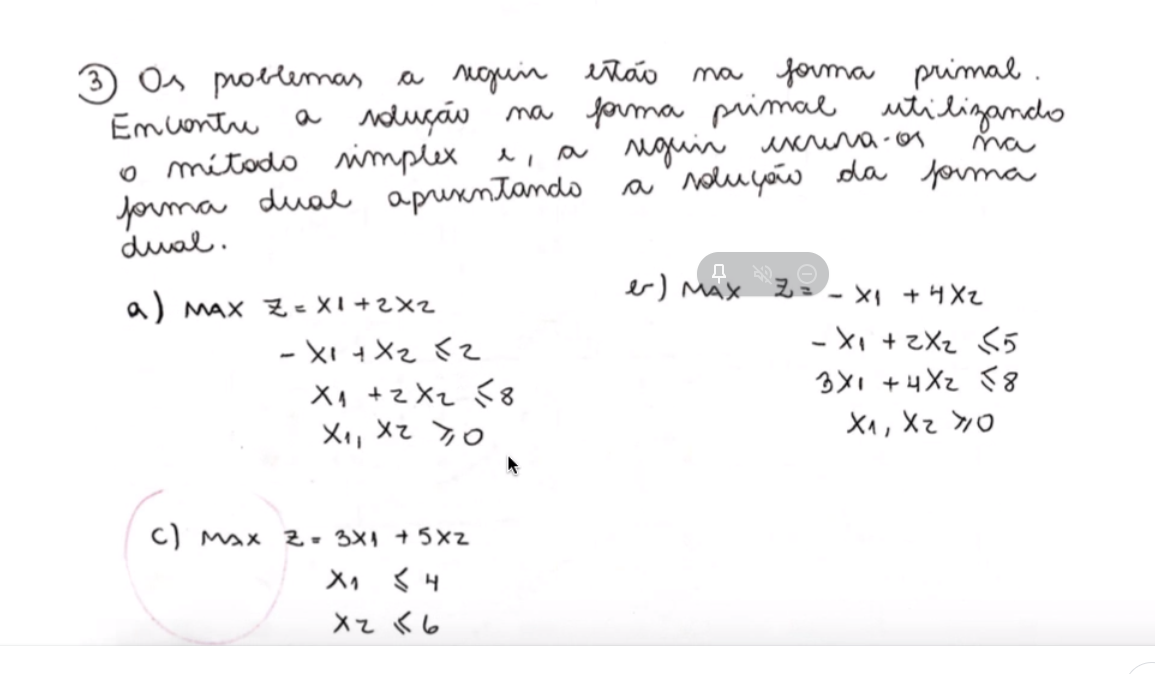 ③ Os problemas a seguir estão na forma primal.
Encontre a solução na forma primal utilizando
o método simplex e, a seguir escreva-os na
forma dual apresentando a solução da forma
dual.
a) MAX Z = X1 + 2X2
- X1 + X2 ≤ 2
X1 + 2X2 ≤ 8
X1, X2 ≥ 0
b) MAX Z = - X1 + 4X2
- X1 + 2X2 ≤ 5
3X1 + 4X2 ≤ 8
X1, X2 ≥ 0
c) MAX Z = 3X1 + 5X2
X1 ≤ 4
X2 ≤ 6